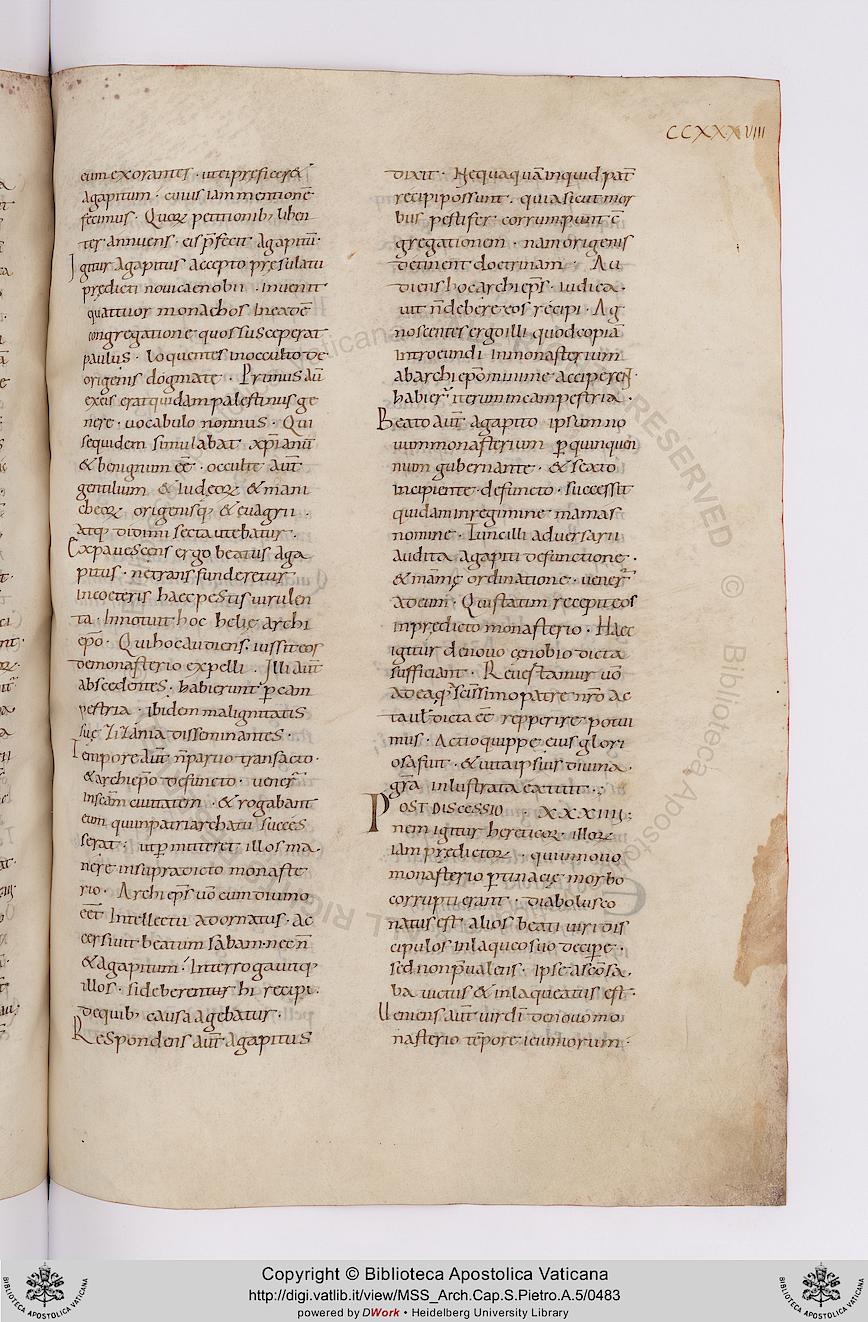 CCXXXVIII
eum exorantes · ut eis preficeret
agapitum · cuius iam mentionē
fecimus · Quoꝝ petitionibꝫ liben
ter annuens · eis p̄fecit agapitū ·
Igitur agapitus accepto presulatu
predicti novi caenobii · invenit
quattuor monachos in eadē
congregatione quos susceperat
paulus · loquentes in occulto de
origenis dogmate · Primus aū
ex eis erat quidam palestinus ge
nere · vocabulo nonnus · Qui
sequidem simulabat xp̄ianū
& benignum eē · occulte aut̄
gentilium & iudeoꝝ & mani
cheoꝝ origenisqꝫ & evagrii ·
atqꝫ didimi secta utebatur ·
Expavescens ergo beatus aga
pitus · ne transfunderetur
in coeteris haec pestis virulen
ta · Innotuit hoc helie archi
ep̄o · Qui hoc audiens · iussit eos
de monasterio expelli · Illi aut̄
abscedentes · habierunt ꝑ cam
pestria · ibidem malignitatis
suę zizania disseminantes ·
Tempore aut̄ n̄ parvo transacto ·
& archiep̄o defuncto · vener̄
in sc̄am civitatem · & rogabant
eum qui in patriarchatu succes
serat · ut ꝑmitteret illos ma
nere in supradicto monaste
rio · Archiep̄s vō cum divino
eēt intellectu adornatus · ac
cersivit beatum sabam · nec n̄
& agapitum · Interrogavitqꝫ
illos · si deberentur hi recipi ·
de quibꝫ causa agebatur ·
Respondens aut̄ agapitus
dixit · Nequaquā inquid pat̄
recipi possunt · quia sicut mor
bus pestifer corrumpunt cō
gregationem · nam origenis
detinent doctrinam · Au
diens hoc archiep̄s · iudica
vit n̄ debere eos recipi · Ag
noscentes ergo illi quod copiā
introeundi in monasterium
ab archiep̄o minime acciperent ·
habier̄ iterum in campestria ·
Beato aut̄ agapito ipsum no
vum monasterium ꝑ quinquen
nium gubernante · & sexto
incipiente defuncto · successit
quidam in regimine mamas
nomine · Tunc illi adversarii
audita agapiti defunctione ·
& mamę ordinatione · vener̄
ad eum · Qui statim recepit eos
in predicto monasterio · Haec
igitur de novo cenobio dicta
sufficiant · Revertamur vō
ad eaqꝫ sc̄issimo patre nr̄o ac
ta ul̄ dicta eē repperire potui
mus · Actio quippe eius glori
osa fuit · & vita ipsius divina
gr̄a inlustrata extitit ·
POST DISCESSIO · XXXIIII ·
nem igitur hereticoꝝ · illoꝝ
iam predictoꝝ · qui in novo
monasterio ꝑtinacię morbo
corrupti erant · diabolus co
natus est alios beati viri dis
cipulos in laqueo suo deciꝑe ·
sed non p̄valens · ipse a sc̄o sa
ba victus & inlaqueatus est ·
Veniens aut̄ vir dī de novo mo
nasterio tēpore ieiuniorum ·
Copyright © Biblioteca Apostolica Vaticana
http://digi.vatlib.it/view/MSS_Arch.Cap.S.Pietro.A.5/0483
powered by DWork • Heidelberg University Library